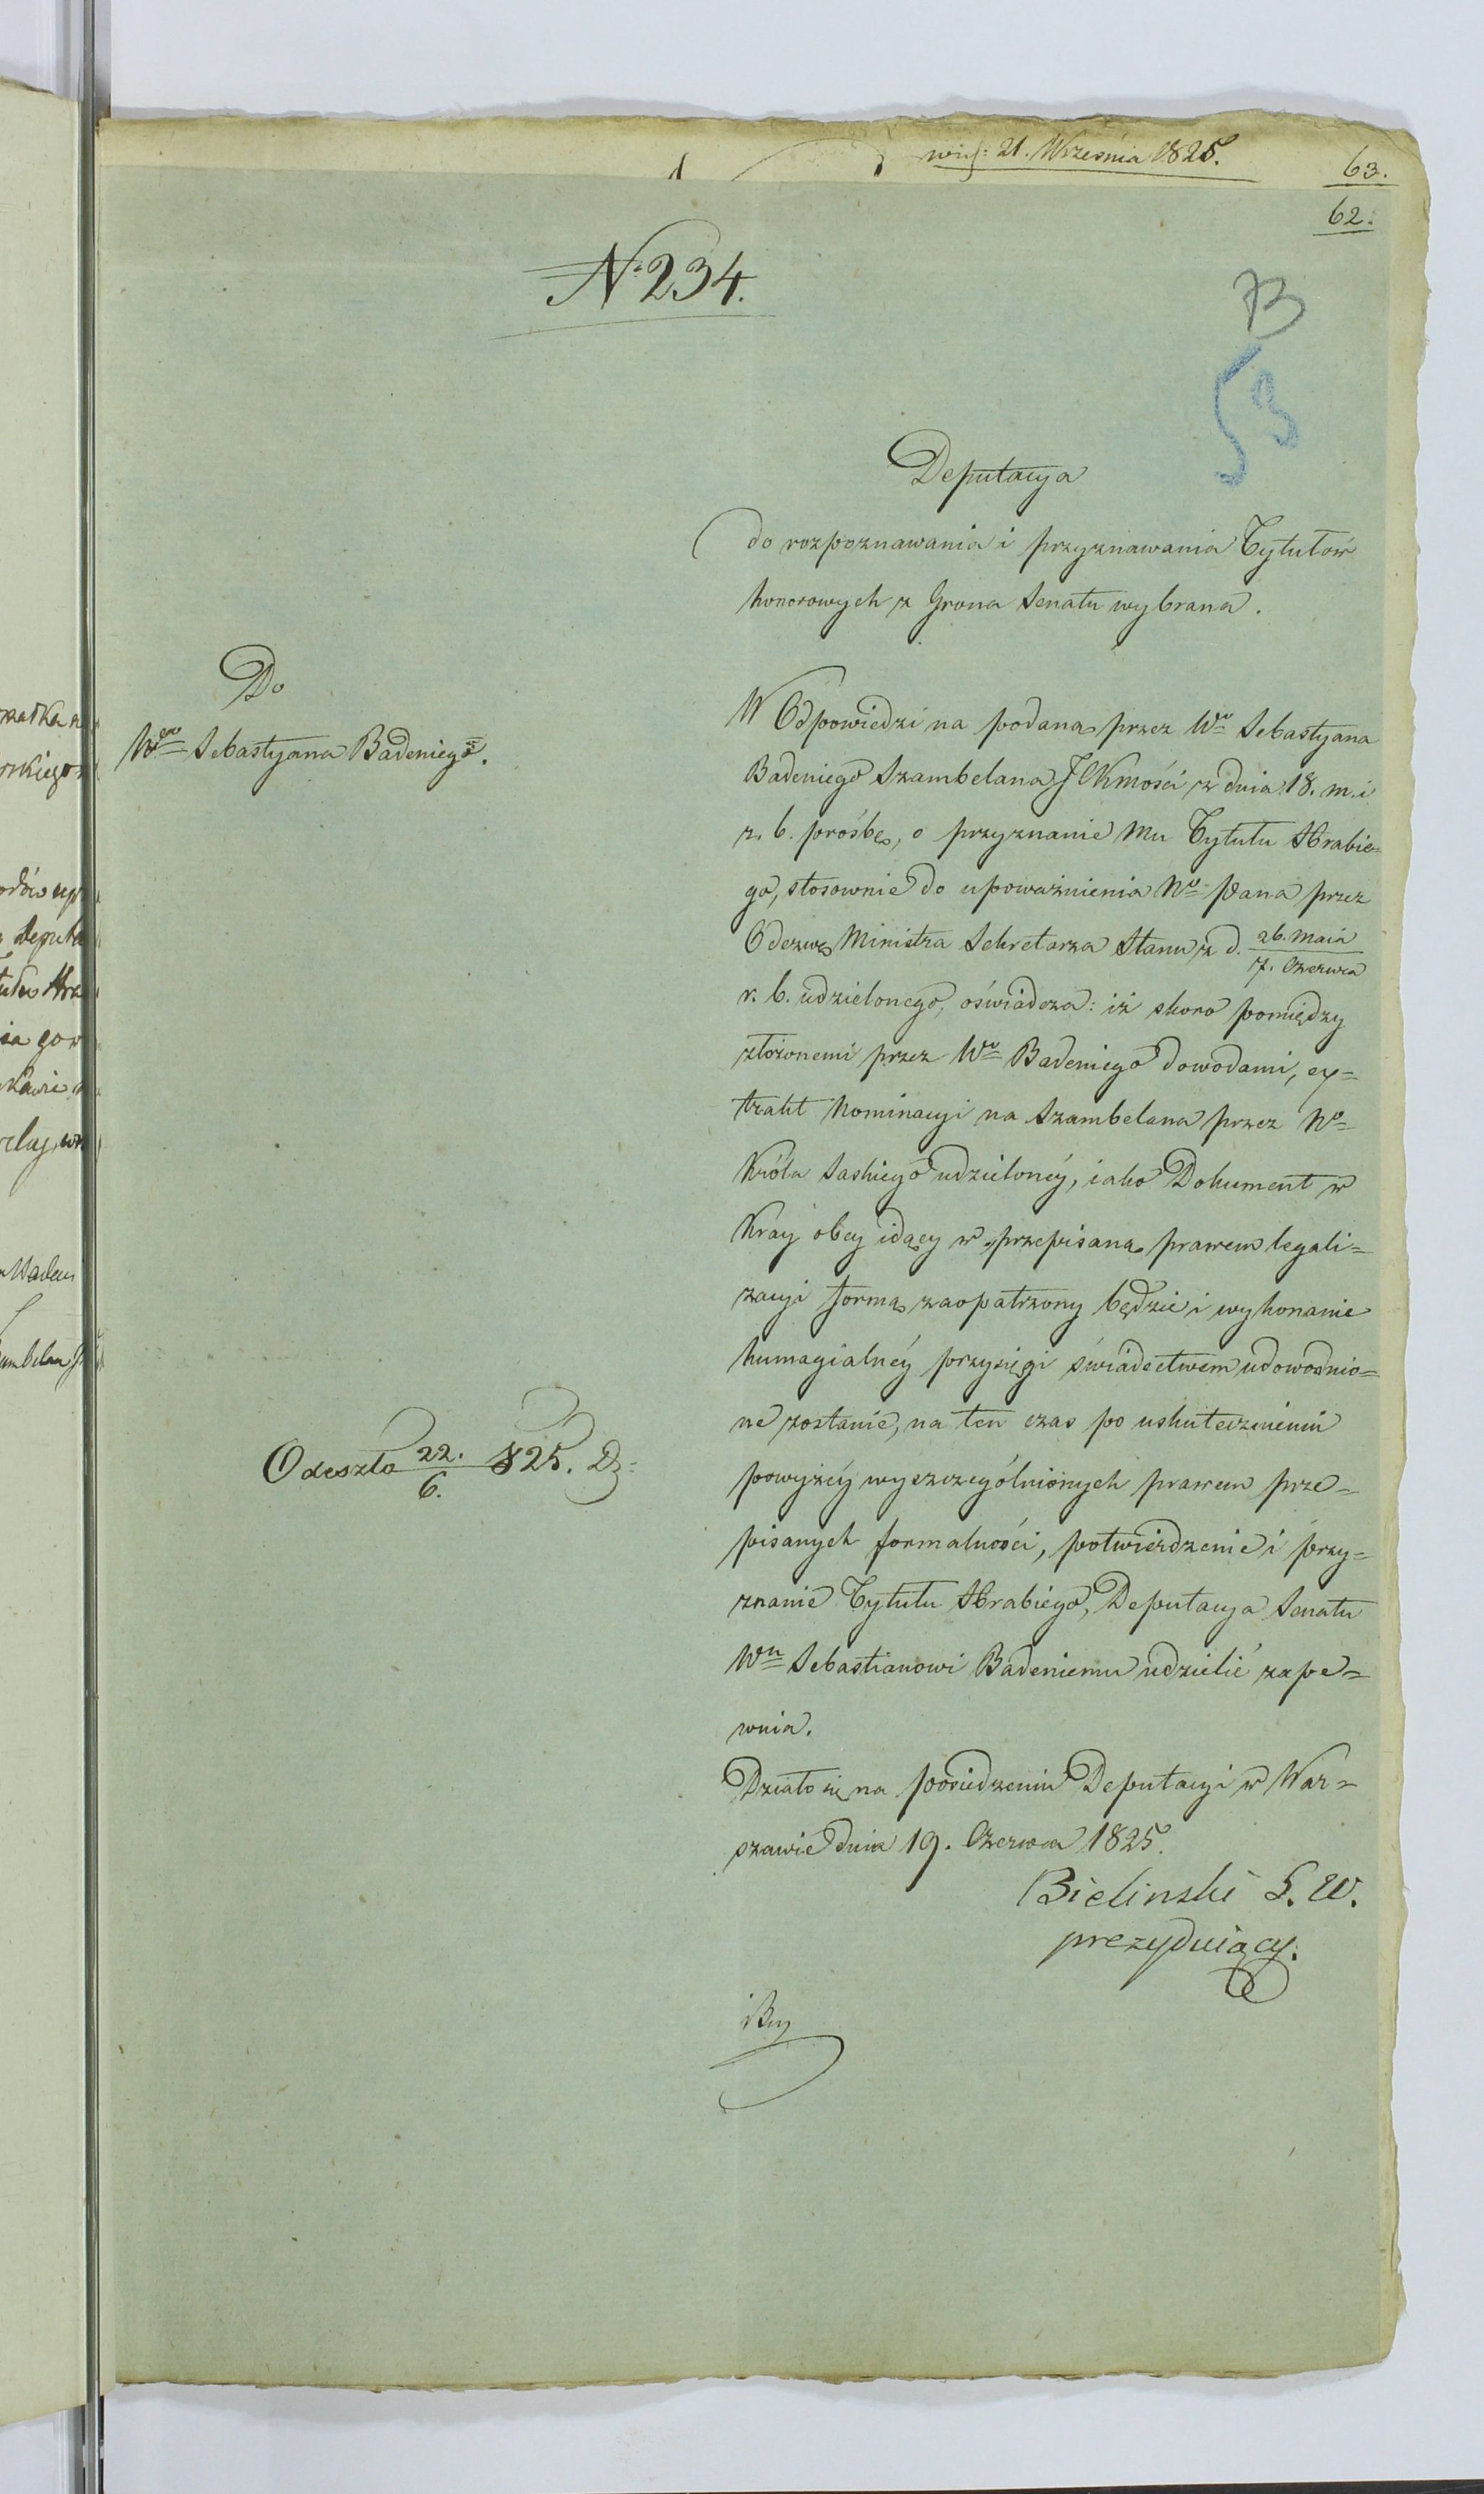 21. Września 1825.
63.
62.
No 234.
B
59
Deputacya
do rozpoznawania i przyznawania Tytułów
honorowych z Grona Senatu wybrana.
Do
Wgo Sebastyana Badeniego.
W Odpowiedzi na podaną przez Wo Sebastyana
Badeniego Szambelana JCKmości z dnia 18. m. i
r. b. prośbę, o przyznanie Mu Tytułu Hrabie=
go, stosownie do upoważnienia No Pana przez
Odezwę Ministra Sekretarza Stanu z d. 26. Maia / 7. Czerwca
r. b. udzielonego, oświadcza: iż skoro pomiędzy
złożonemi przez Wo Badeniego dowodami, ex=
trakt Nominacyi na Szambelana przez No
Króla Saskiego udzielonéy, iako Dokument w
Kray obcy idący w przepisaną prawem legali=
zacyi formą zaopatrzony będzie i wykonanie
humagialnéy przysięgi świadectwem udowodnio=
ne zostanie, na ten czas po uskutecznieniu
powyżéy wyszczególnionych prawem prze=
pisanych formalności, potwierdzenie i przy=
znanie Tytułu Hrabiego, Deputacya Senatu
Wu Sebastianowi Badeniemu udzielić zape=
wnia.
Działo się na posiedzeniu Deputacyi w War=
szawie dnia 19. Czerwca 1825.
Odeszło 22./6. 825.
Bielinski S. W.
prezyduiący.